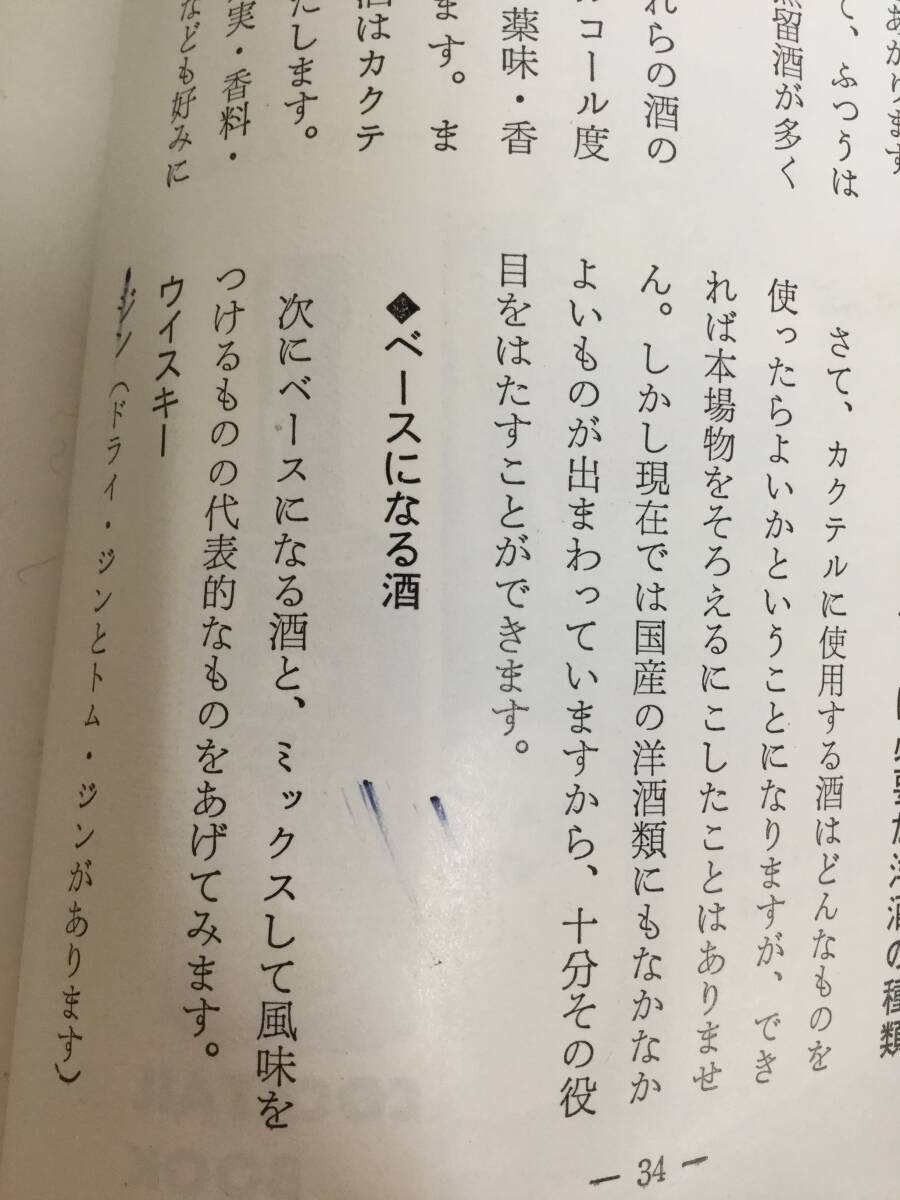 あがります
て、ふつうは
留酒が多く
れらの酒の
ルコール度
薬味・香
ます。ま
酒はカクテ
たします。
実・香料・
なども好みに
必要な洋酒の種類
さて、カクテルに使用する酒はどんなものを
使ったらよいかということになりますが、でき
れば本場物をそろえるにこしたことはありませ
ん。しかし現在では国産の洋酒類にもなかなか
よいものが出まわっていますから、十分その役
目をはたすことができます。
◆ベースになる酒
次にベースになる酒と、ミックスして風味を
つけるものの代表的なものをあげてみます。
ウイスキー
ジン(ドライ・ジンとトム・ジンがあります)
COCKTAIL
BOOK
— 34 —